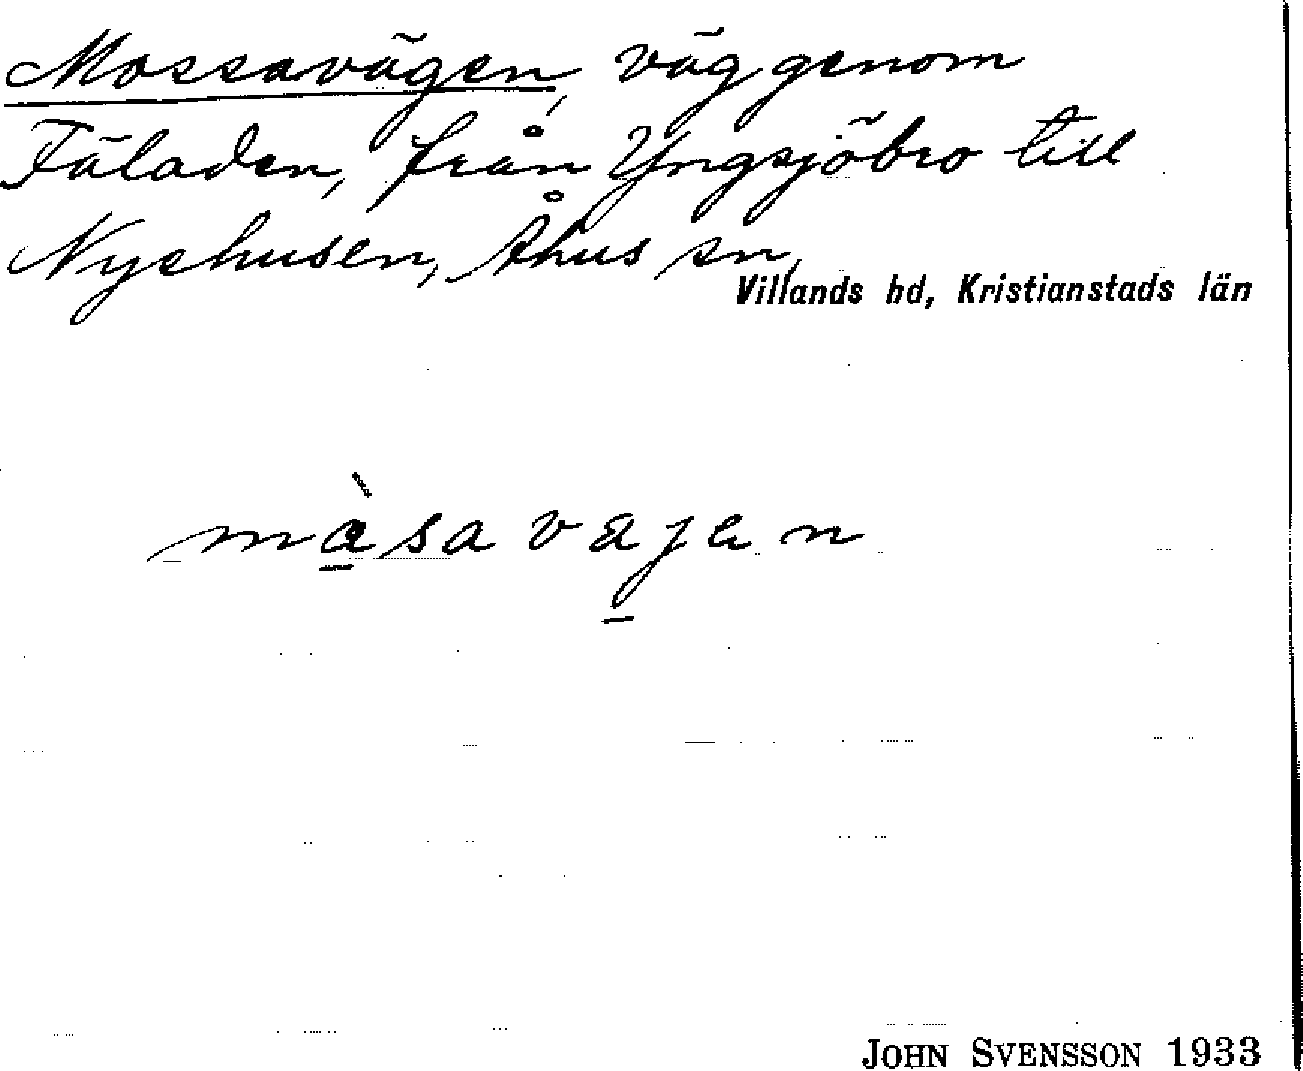 Mossavägen, väg genom
Fäladen, från Yngsjöbro till
Nyehusen, Åhus sn,
Villands hd, Kristianstads län
måsavajen
JOHN SVENSSON 1933